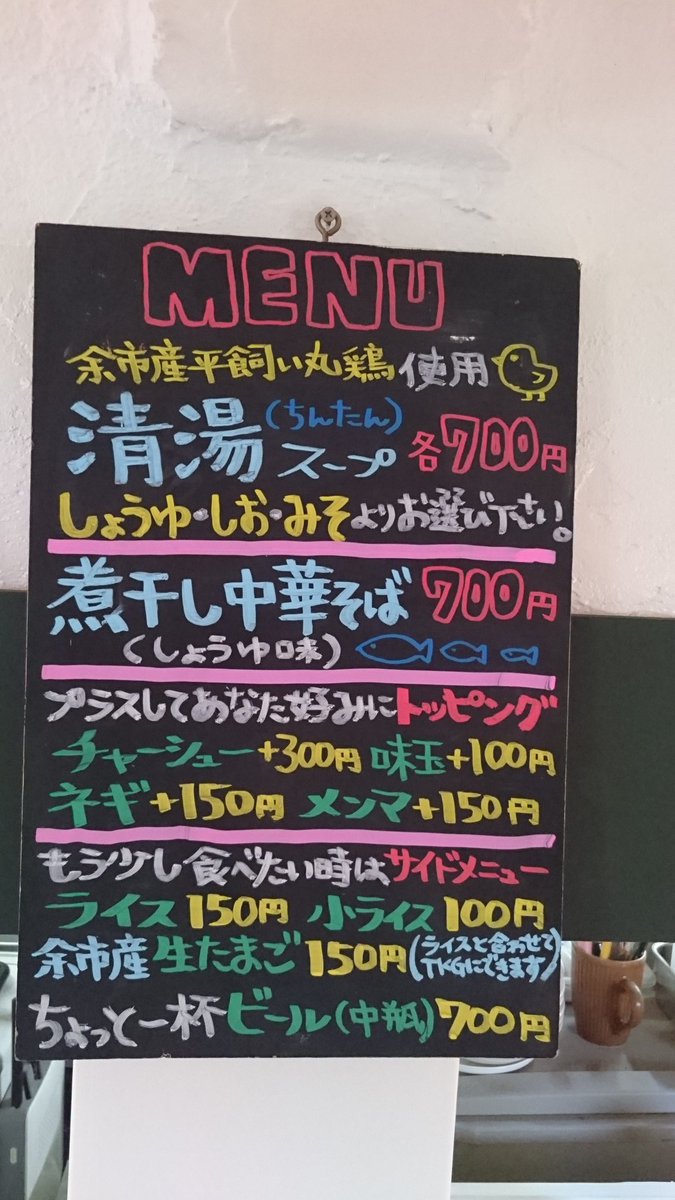 MENU
余市産平飼い丸鶏使用
清湯(ちんたん)スープ 各700円
しょうゆ・しお・みそよりお選び下さい。
煮干し中華そば 700円
(しょうゆ味)
プラスしてあなた好みにトッピング
チャーシュー+300円 味玉+100円
ネギ+150円 メンマ+150円
もう少し食べたい時はサイドメニュー
ライス150円 小ライス100円
余市産生たまご150円(ライスと合わせてTKGにできます)
ちょっと一杯ビール(中瓶)700円